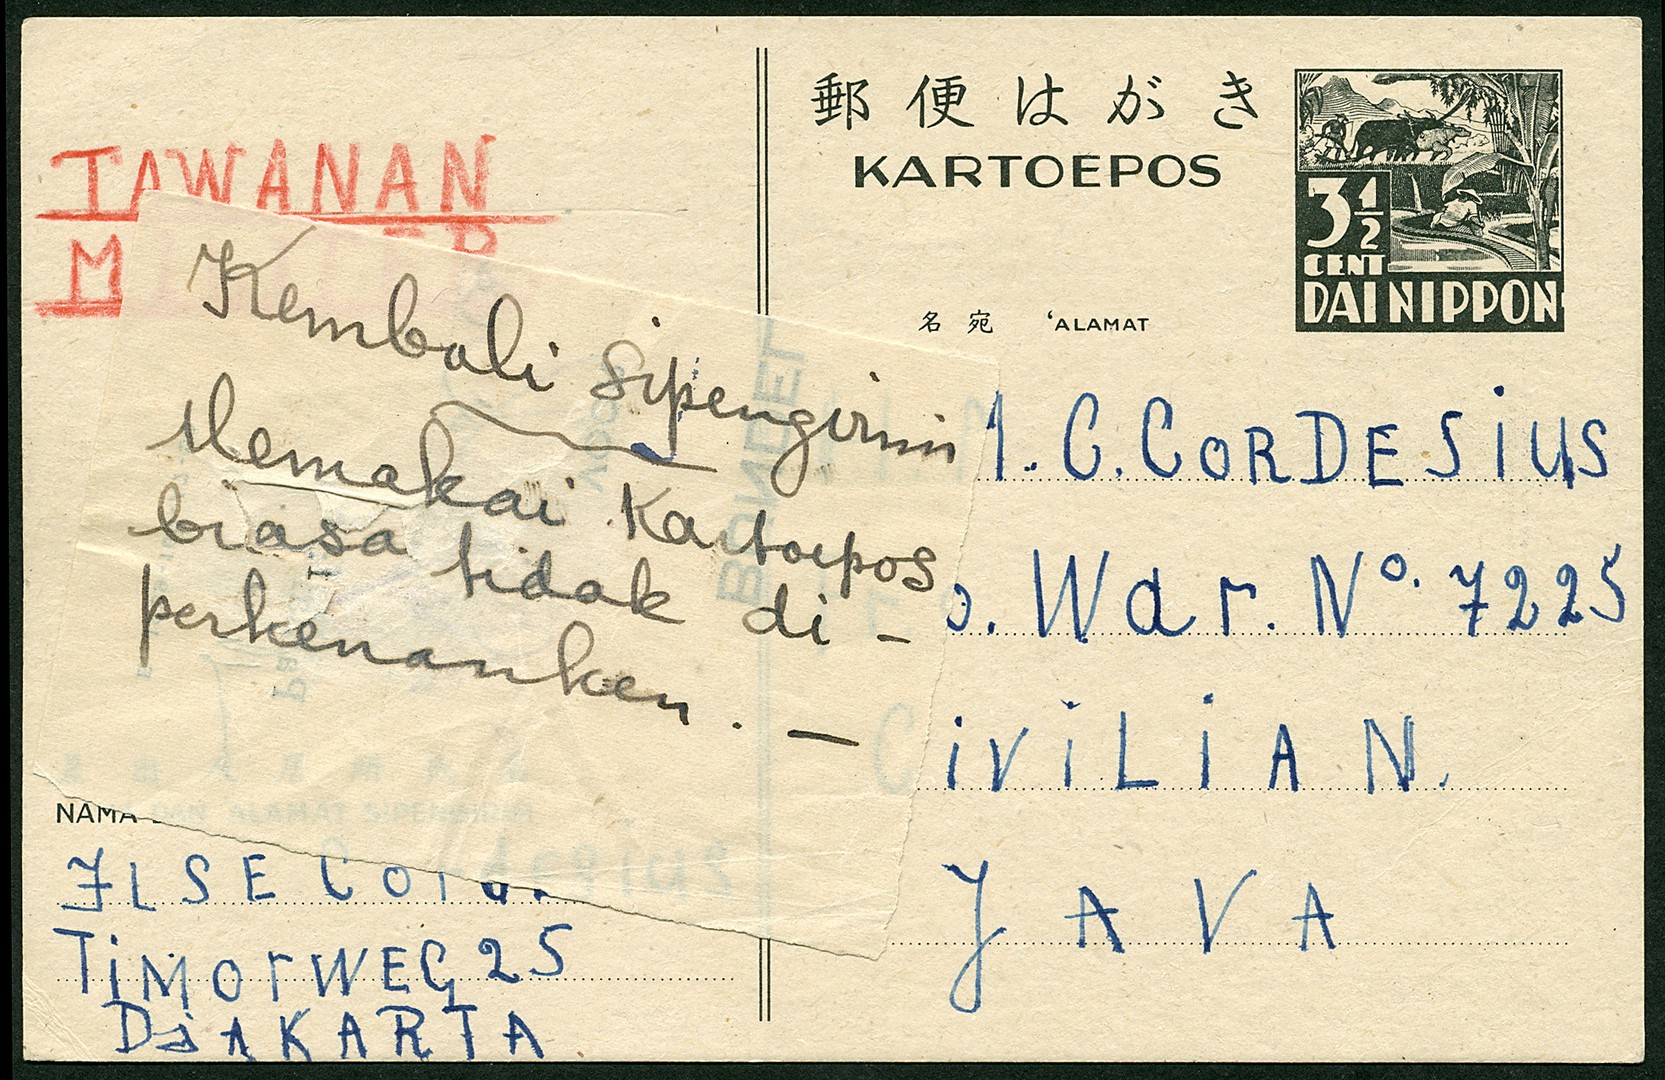 TAWANAN
M
Kembali sipengirim
Memakai Kartoepos
biasa tidak di-
perkenanken. —
NAMA
ILSE Cor
TiMorWEG 25
DJAKARTA
郵便はがき
KARTOEPOS
3 1/2
CENT
DAI NIPPON
名宛 'ALAMAT
BONDEL
. C. CORDESiUS
o. War. No. 7225
CiViLiAN.
JAVA